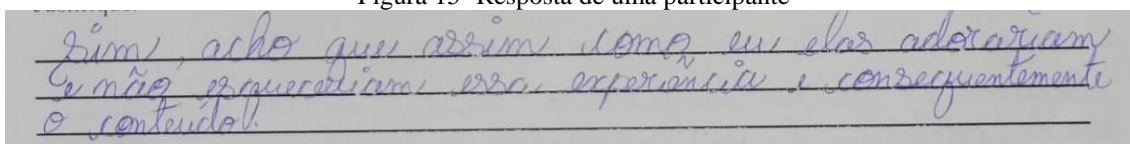 Figura 15- Resposta de uma participante
Sim, acho que assim como eu elas adorariam
e não esqueceriam essa experiência e consequentemente
o conteúdo.